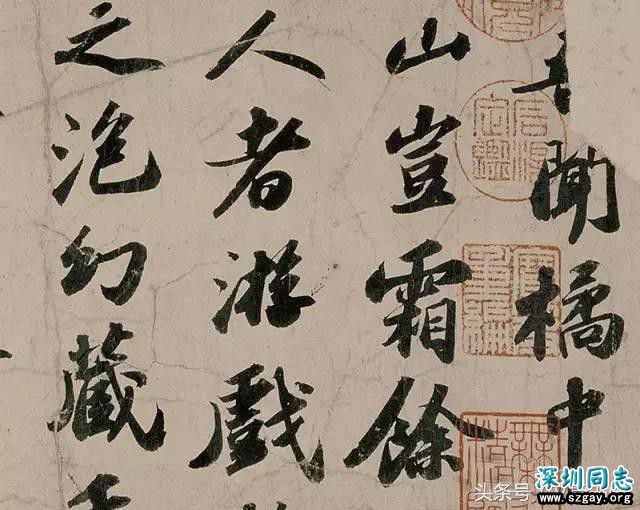 聞橘中
山豈霜餘
人者游戲
之泡幻藏千
头条号
深圳同志
www.szgay.org